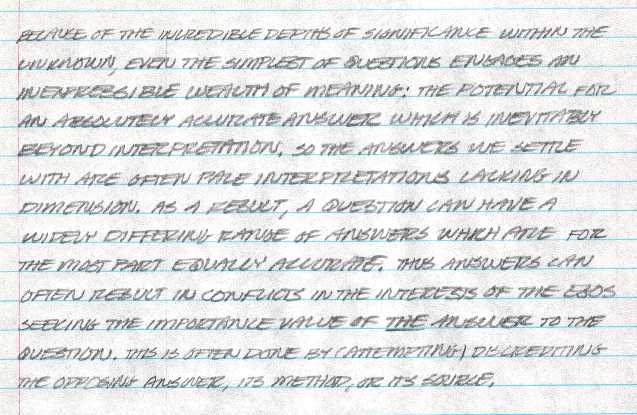 BECAUSE OF THE INCREDIBLE DEPTHS OF SIGNIFICANCE WITHIN THE
UNKNOWN, EVEN THE SIMPLEST OF QUESTIONS ENGAGES AN
INEXPRESSIBLE WEALTH OF MEANING: THE POTENTIAL FOR
AN ABSOLUTELY ACCURATE ANSWER WHICH IS INEVITABLY
BEYOND INTERPRETATION. SO THE ANSWERS WE SETTLE
WITH ARE OFTEN PALE INTERPRETATIONS LACKING IN
DIMENSION. AS A RESULT, A QUESTION CAN HAVE A
WIDELY DIFFERING RANGE OF ANSWERS WHICH ARE FOR
THE MOST PART EQUALLY ACCURATE. THUS ANSWERS CAN
OFTEN RESULT IN CONFLICTS IN THE INTERESTS OF THE EGOS
SEEKING THE IMPORTANCE VALUE OF THE ANSWER TO THE
QUESTION. THIS IS OFTEN DONE BY (ATTEMPTING) DISCREDITING
THE OPPOSING ANSWER, ITS METHOD, OR ITS SOURCE.